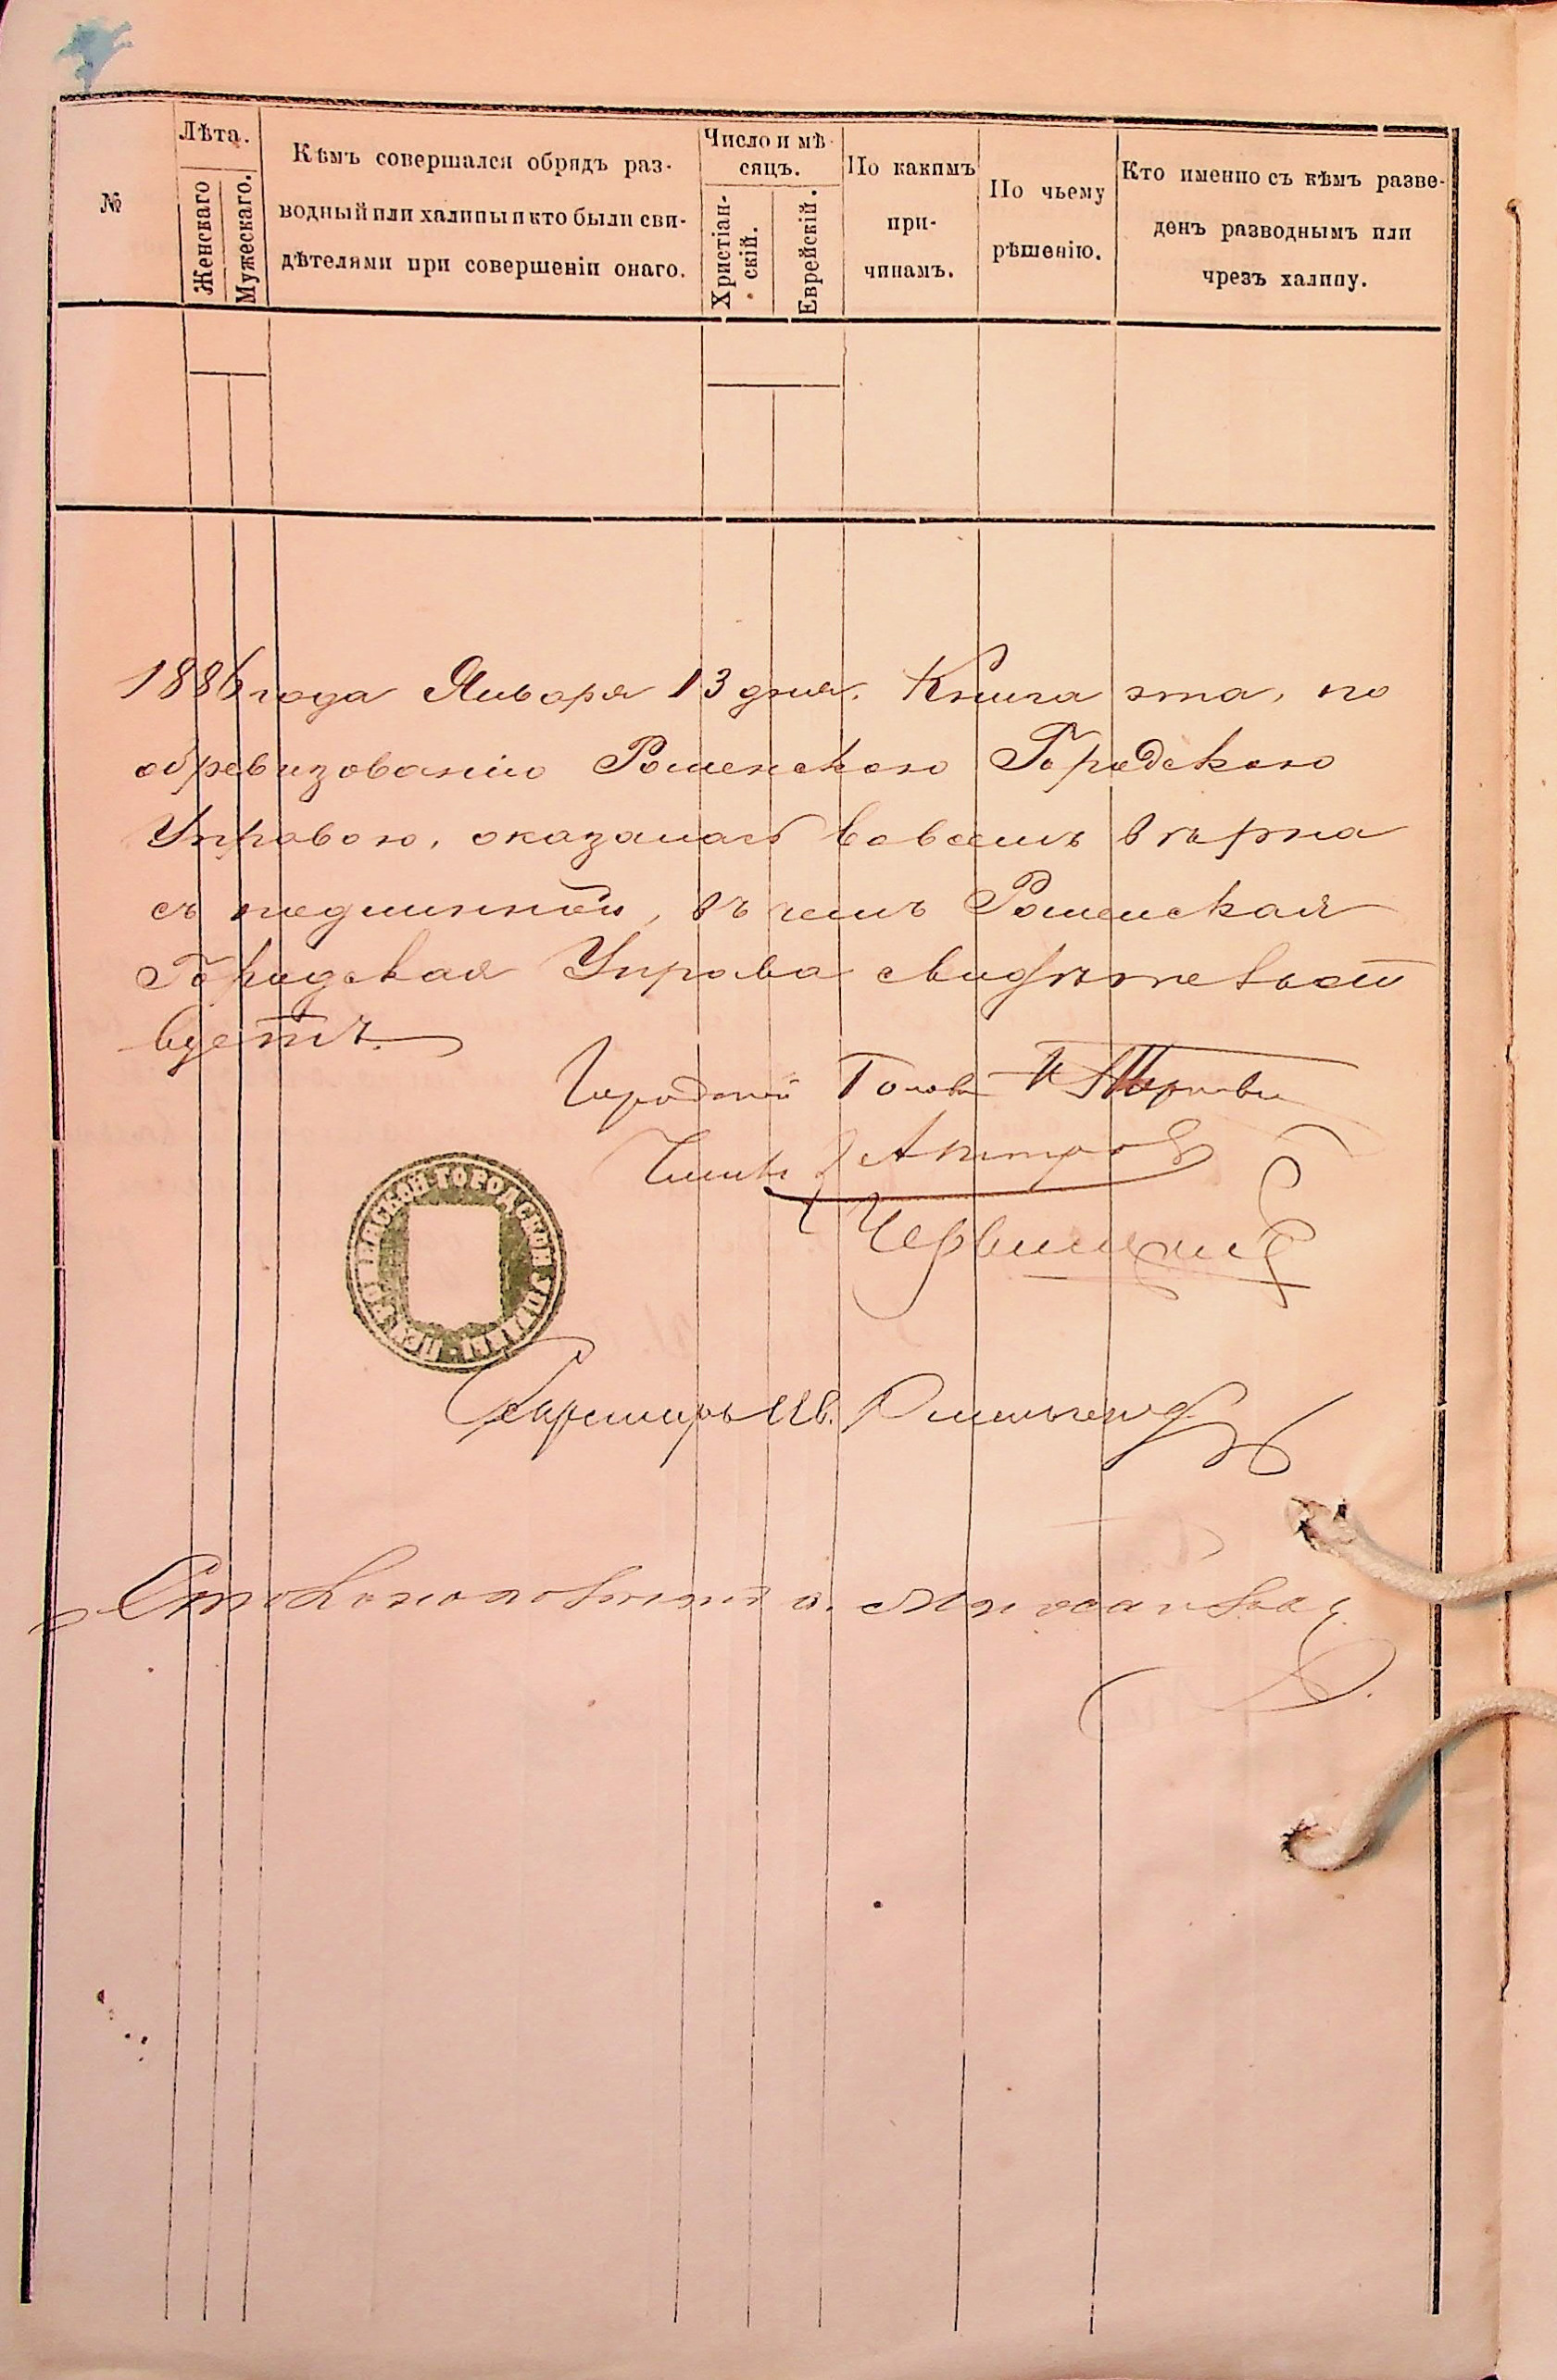 №
Лѣта.
Женскаго
Мужескаго.
Кѣмъ совершался обрядъ раз-
водный или халицы и кто были сви-
дѣтелями при совершеніи онаго.
Число и мѣ-
сяцъ.
Христіан-
скій.
Еврейскій.
По какимъ
при-
чинамъ.
По чьему
рѣшенію.
Кто именно съ кѣмъ разве-
денъ разводнымъ или
чрезъ халицу.
1886 года Января 13 дня. Книга эта, по
обревизованію Роменскою Городскою
Управою, оказалась вовсемъ вѣрна
съ подлинной, въ чемъ Роменская
Городская Управа свидѣтельст
вуетъ.
Городской Голова
Члены
ПЕЧ. РОМЕНСКОЙ ГОРОДСКОЙ УПРАВЫ
Секретарь Ив.